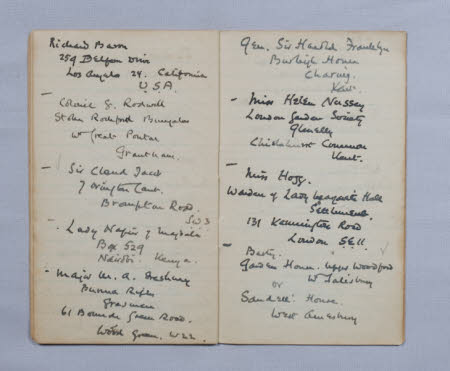 Richard Baron
259 Belgan Drive
Los Angeles 24. California
U.S.A.
- Colonel G. Rodwell
Stoke Rochford Bungalow
Nr Great Ponton
Grantham.
- Sir Claud Jacob
7 Ovington Court.
Brompton Road.
SW3
- Lady Napier of Magdala
Box 529
Nairobi Kenya.
- Major W. A.
Burma Rifles
61 Bounds Green Road.
Wood Green. N22.
Gen. Sir Harold Franklyn
Burleigh House
Charing.
Kent.
- Miss Helen Nussey
London Garden Society
Glenelly
Chislehurst Common
Kent.
- Miss Hogg.
Warden of Lady Margaret Hall
Settlement.
131 Kennington Road
London S.E.11.
- Betty.
Garden House. Upper Woodford
Nr Salisbury
or
House
West Amesbury